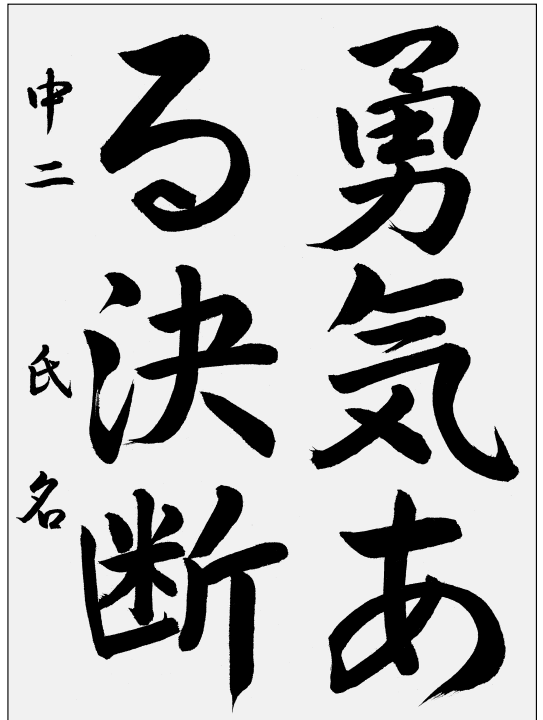 勇気あ
る決断
中二 氏名